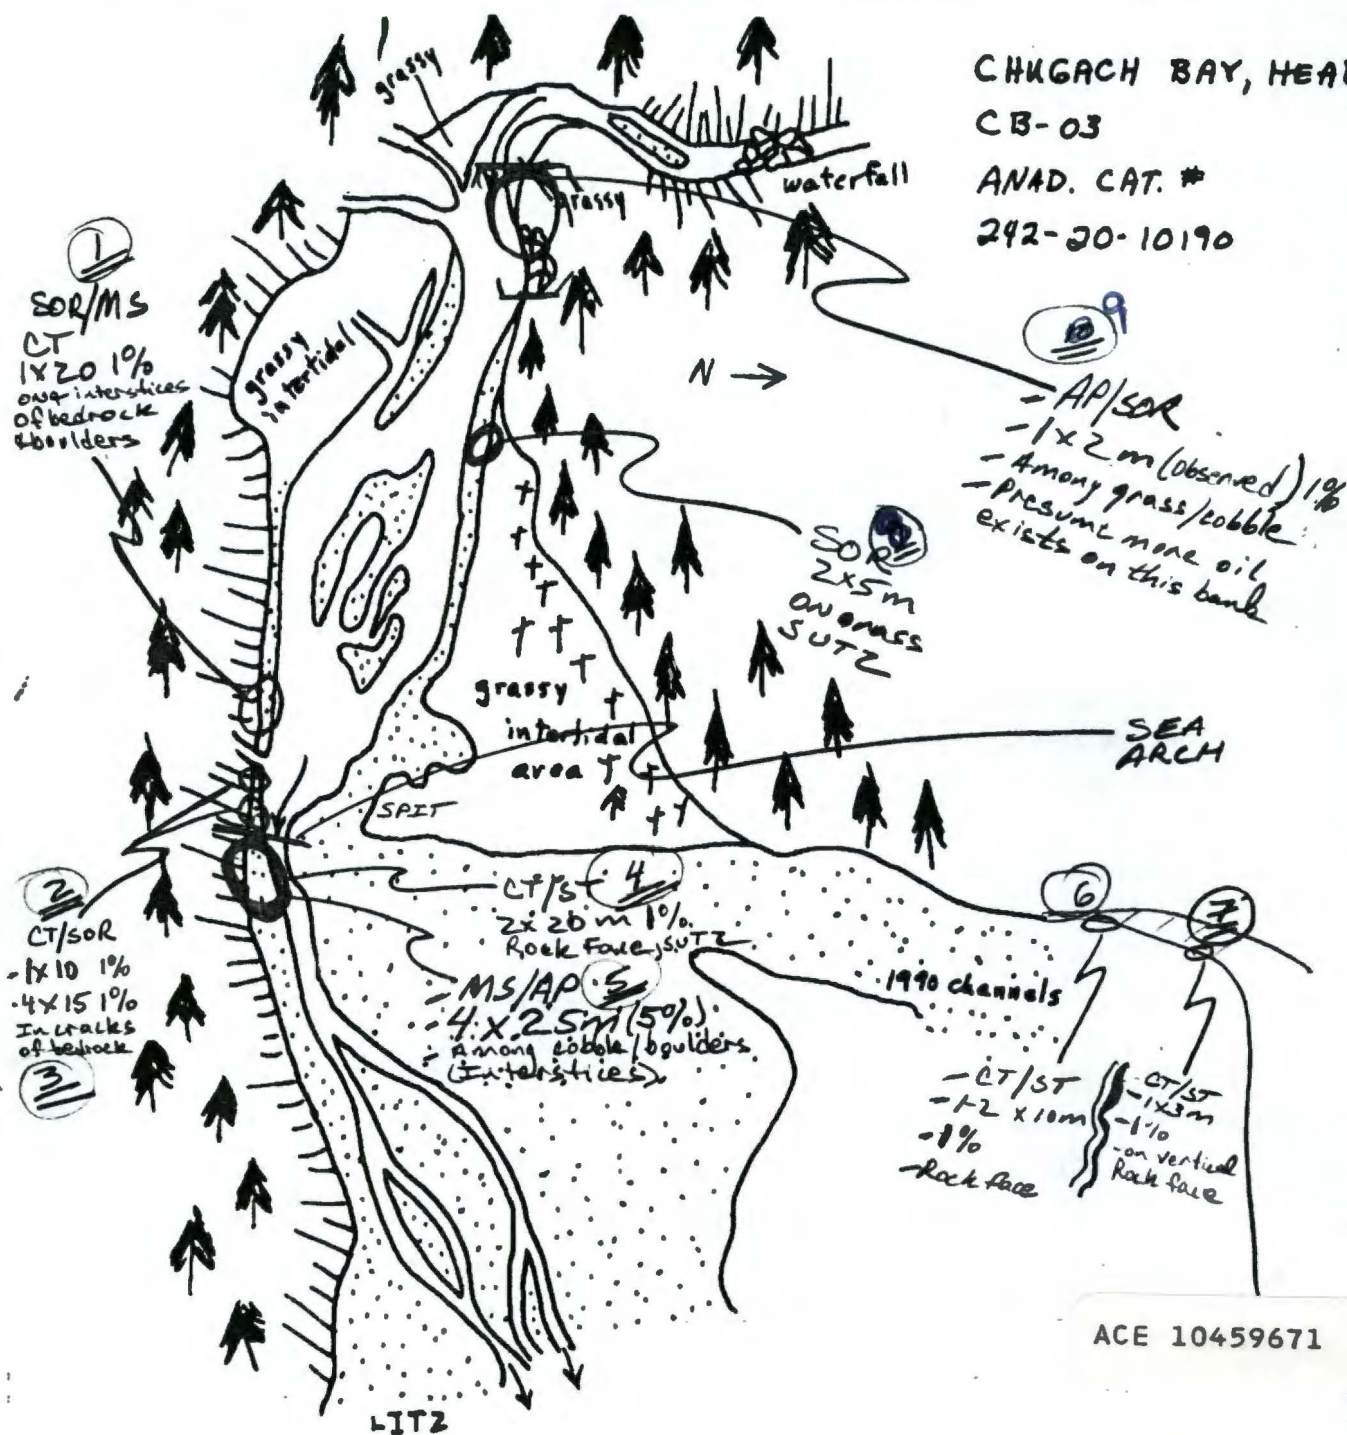 CHUGACH BAY, HEAD
CB-03
ANAD. CAT. #
242-20-10190
grassy
grassy
waterfall
1
SOR/MS
CT
1X20 1%
interstices
of bedrock
&boulders
grassy
intertidal
N →
9
- AP/SOR
- 1 x 2 m (observed) 1%
- Among grass/cobble
- Presume more oil
exists on this bank
SOR
2x5m
ON grass
SUTZ
grassy
intertidal
area
SEA
ARCH
SPIT
2
CT/SOR
- 1x10 1%
- 4x15 1%
In cracks
of bedrock
3
CT/ST 4
2x 20 m 1%
Rock Face, SUTZ
- MS/AP 5
4 x 25m (5%)
- Among cobble/boulders
(Interstices)
6
7
1990 channels
- CT/ST
- 1-2 x 10m
- 1%
- Rock face
- CT/ST
- 1x3m
- 1%
- on vertical
Rock face
LITZ
ACE 10459671